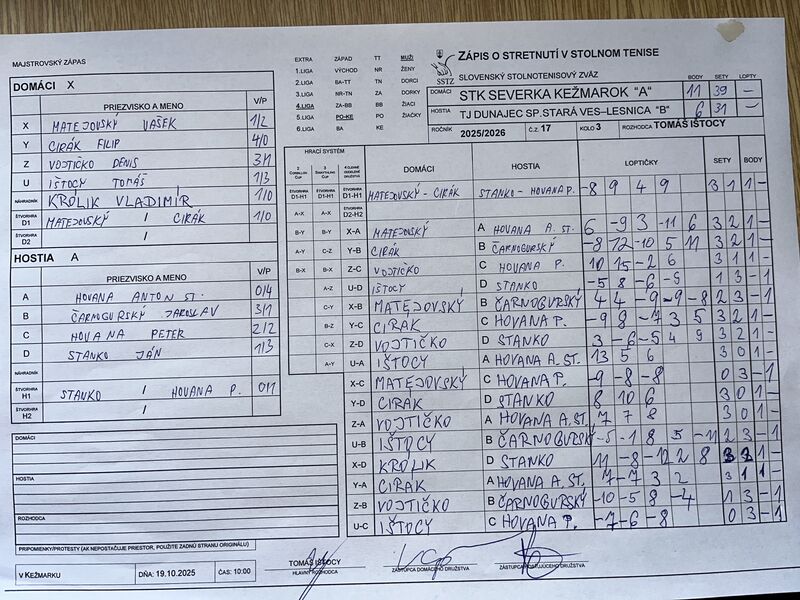 MAJSTROVSKÝ ZÁPAS
DOMÁCI X
PRIEZVISKO A MENO V/P
X MATEJOVSKÝ VAŠEK 1/2
Y CIRÁK FILIP 4/0
Z VOJTIČKO DENIS 3/1
U IŠTOCY TOMÁŠ 1/3
NÁHRADNÍK KROLIK VLADIMÍR 1/0
ŠTVORHRA D1 MATEJOVSKÝ / CIRÁK 1/0
ŠTVORHRA D2 /
HOSTIA A
PRIEZVISKO A MENO V/P
A HOVANA ANTON ST. 0/4
B ČARNOGURSKÝ JAROSLAV 3/1
C HOVANA PETER 2/2
D STANKO JÁN 1/3
NÁHRADNÍK
ŠTVORHRA H1 STANKO / HOVANA P. 0/1
ŠTVORHRA H2 /
DOMÁCI
HOSTIA
ROZHODCA
PRIPOMIENKY/PROTESTY (AK NEPOSTAČUJE PRIESTOR, POUŽITE ZADNÚ STRANU ORIGINÁLU)
V KEŽMARKU DŇA: 19.10.2025 ČAS: 10:00
EXTRA ZÁPAD TT MUŽI
1.LIGA VÝCHOD NR ŽENY
2.LIGA BA-TT TN DORCI
3.LIGA NR-TN ZA DORKY
4.LIGA ZA-BB BB ŽIACI
5.LIGA PO-KE PO ŽIAČKY
6.LIGA BA KE
SSTZ
ZÁPIS O STRETNUTÍ V STOLNOM TENISE
SLOVENSKÝ STOLNOTENISOVÝ ZVÄZ
BODY SETY LOPTY
DOMÁCI STK SEVERKA KEŽMAROK "A" 11 39 –
HOSTIA TJ DUNAJEC SP.STARÁ VES–LESNICA "B" 6 31 –
ROČNÍK 2025/2026 Č.Z. 17 KOLO 3 ROZHODCA TOMÁŠ IŠTOCY
HRACÍ SYSTÉM
DOMÁCI HOSTIA LOPTIČKY SETY BODY
ŠTVORHRA D1-H1 ŠTVORHRA D1-H1 ŠTVORHRA D1-H1 MATEJOVSKÝ - CIRÁK STANKO - HOVANA P. -8 9 4 9 3 1 1 –
A-X A-X ŠTVORHRA D2-H2
B-Y B-Y X-A MATEJOVSKÝ A HOVANA A. ST. 6 -9 3 -11 6 3 2 1 –
A-Y C-Z Y-B CIRÁK B ČARNOGURSKÝ -8 12 -10 5 11 3 2 1 –
B-X B-X Z-C VOJTIČKO C HOVANA P. 10 15 -2 6 3 1 1 –
A-Z U-D IŠTOCY D STANKO -5 8 -6 -9 1 3 – 1
C-Y X-B MATEJOVSKÝ B ČARNOGURSKÝ 4 4 -9 -9 -8 2 3 – 1
B-Z Y-C CIRAK C HOVANA P. -9 8 -7 3 5 3 2 1 –
C-X Z-D VOJTIČKO D STANKO 3 -6 -5 4 9 3 2 1 –
A-Y U-A IŠTOCY A HOVANA A. ST. 13 5 6 3 0 1 –
X-C MATEJOVSKÝ C HOVANA P. -9 -8 -8 0 3 – 1
Y-D CIRAK D STANKO 8 10 6 3 0 1 –
Z-A VOJTIČKO A HOVANA A. ST. 7 7 8 3 0 1 –
U-B IŠTOCY B ČARNOGURSKÝ -5 -1 8 5 -11 2 3 – 1
X-D KROLIK D STANKO 11 -8 -12 2 8 3 2 1 –
Y-A CIRAK A HOVANA A. ST. 7 -7 3 2 3 1 1 –
Z-B VOJTIČKO B ČARNOGURSKÝ -10 -5 8 -4 1 3 – 1
U-C IŠTOCY C HOVANA P. -7 -6 -8 0 3 – 1
TOMÁŠ IŠTOCY
HLAVNÝ ROZHODCA ZÁSTUPCA DOMÁCEHO DRUŽSTVA ZÁSTUPCA HOSŤUJÚCEHO DRUŽSTVA